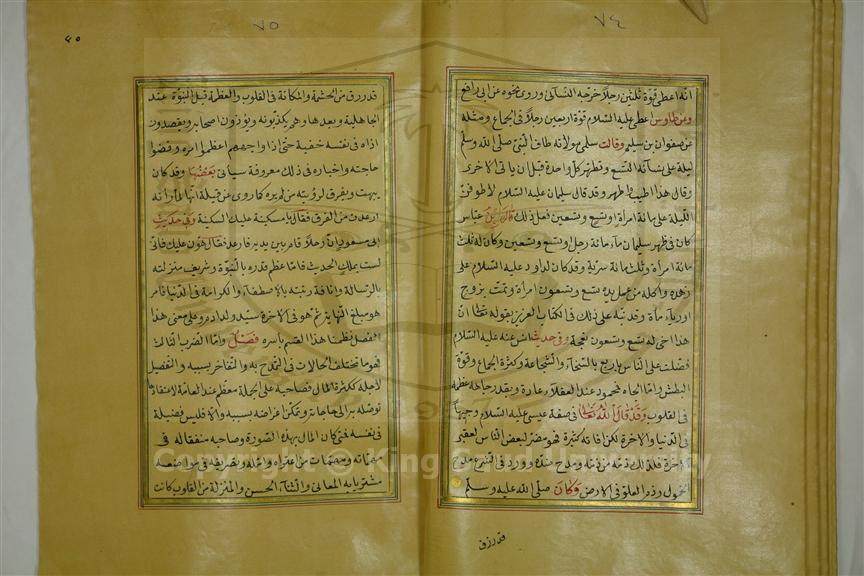 ٧٤
انه اعطى قوة ثلثين رجلا خرجه النسائى وروى نحوه عن ابى رافع
وعن طاوس اعطى عليه السلام قوة اربعين رجلا فى الجماع ومثله
عن صفوان بن سليم وقالت سلمى مولاته طاف النبى صلى الله وسلم
ليلة على نسائه التسع وتطهر من كل واحدة قبل ان ياتى الاخرى
وقال هذا اطيب واطهر وقد قال سليمان عليه السلام لاطوفن
الليلة على مائة امرأة او تسع وتسعين فعل ذلك قال ابن عباس
كان فى ظهر سليمان ماء مائة رجل او تسع وتسعين وكان له ثلث
مائة امرأة وثلث مائة سرية وقد كان لداود عليه السلام على
زهده واكله من عمل يده تسع وتسعون امرأة وتمت بزوج
اورياء مأة وقد نبه على ذلك فى الكتاب العزيز بقوله تعالى ان
هذا اخى له تسع وتسعون نعجة وفى حديث انس عنه عليه السلام
فضلت على الناس باربع بالسخاء والشجاعة وكثرة الجماع وقوة
البطش واما الجاه فمحمود عند العقلاء عادة وبقدر جاهه عظمه
فى القلوب وقد قال الله تعالى فى صفة عيسى عليه السلام وجيها
فى الدنيا والاخرة لكن افاته كثيرة فهو مضر لبعض الناس لعقبى
الاخرة فلذلك ذمه من ذمه ومدح ضده وورد فى الشرع مدح
الخمول وذم العلو فى الارض وكان صلى الله عليه وسلم
قد رزق
٧٥
قد رزق من الحشمة والمكانة فى القلوب والعظمة قبل النبوة عند
الجاهلية وبعدها وهم يكذبونه ويؤذون اصحابه ويقصدون
اذاه فى نفسه خفية حتى اذا واجههم اعظموا امره وقضوا
حاجته واخباره فى ذلك معروفة سياتى بعضها وقد كان
يبهت ويفرق لرؤيته من لم يره كما روى عن قيلة انها لما رأته
ارعدت من الفرق فقال يا مسكينة عليك السكينة وفى حديث
ابى مسعود ان رجلا قام بين يديه فارعد فقال هون عليك فانى
لست بملك الحديث فاما عظم قدره بالنبوة وشريف منزلته
بالرسالة وانافة رتبته بالاصطفاء والكرامة فى الدنيا فامر
هو مبلغ النهاية ثم هو فى الاخرة سيد ولد ادم وعلى معنى هذا
الفصل نظمنا هذا القسم باسره فصل واما الضرب الثالث
فهو ما تختلف الحالات فى التمدح به والتفاخر بسببه والتفضيل
لاجله ككثرة المال فصاحبه على الجملة معظم عند العامة لاعتقادها
توصله به الى حاجاته وتمكن اغراضه بسببه والا فليس فضيلة
فى نفسه فمتى كان المال بهذه الصورة وصاحبه منفقا له فى
مهماته ومهمات من اعتراه وامله وتصريفه فى مواضعه
مشتريا به المعالى والثناء الحسن والمنزلة من القلوب كانت
Copyright © King Saud University